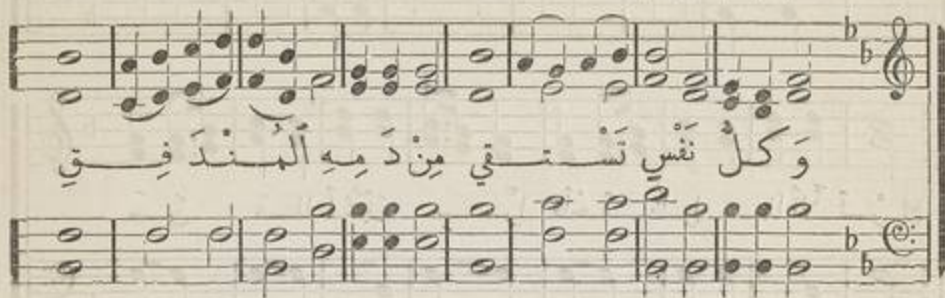 وَ كلُّ نَفْسٍ تَسْتقي مِنْ دَمِهِ ٱلْمُنْدَفِقِ